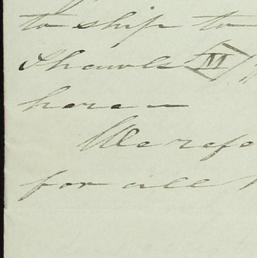 to ship to
Shawls M
here —
We refe
for all